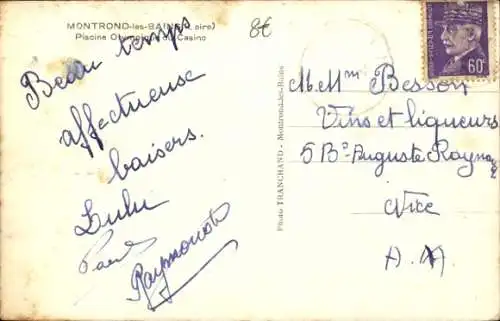 MONTROND-les-BAINS (Loire)
Piscine Olympique du Casino
8€
Beau temps
affectueuse
baisers.
Lulu
Paul
Raymonde
Photo TRANCHAND - Montrond-les-Bains
60c
M. Mme Besson
Vins et liqueurs
5 Bd Auguste Raynaud
Nice
A.M